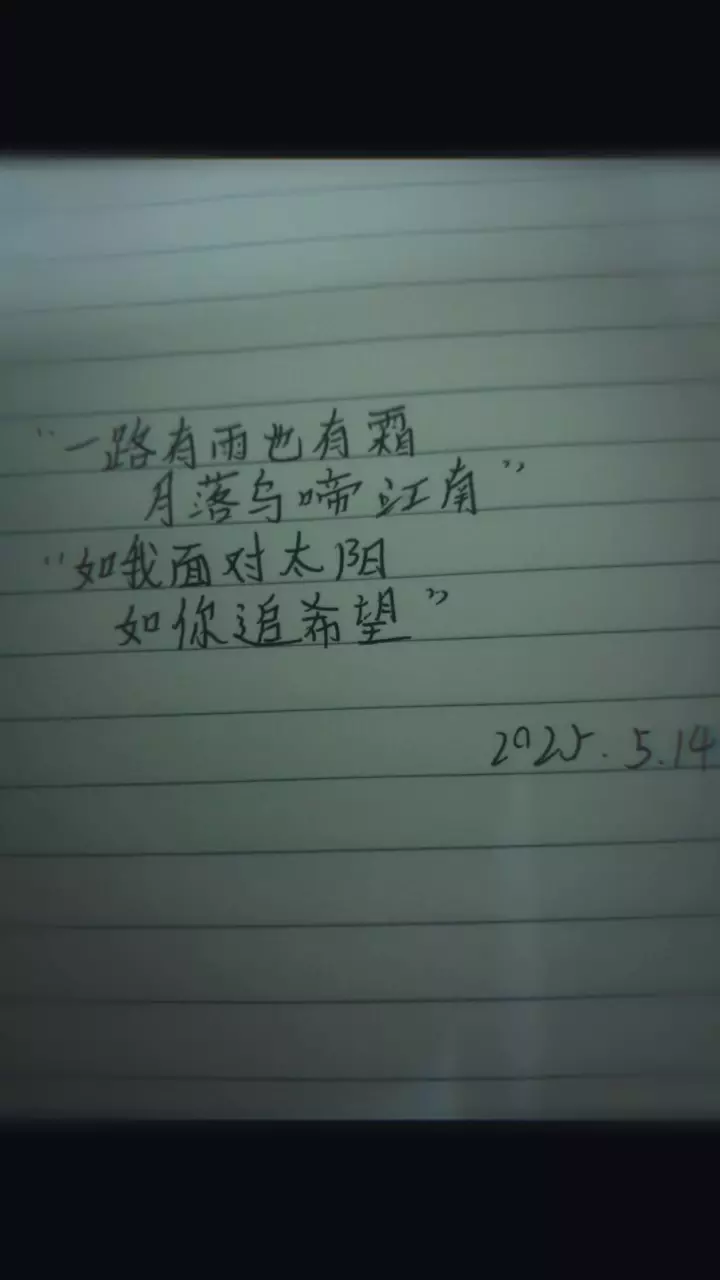 “一路有雨也有霜
月落乌啼江南”
“如我面对太阳
如你追希望”
2025.5.14